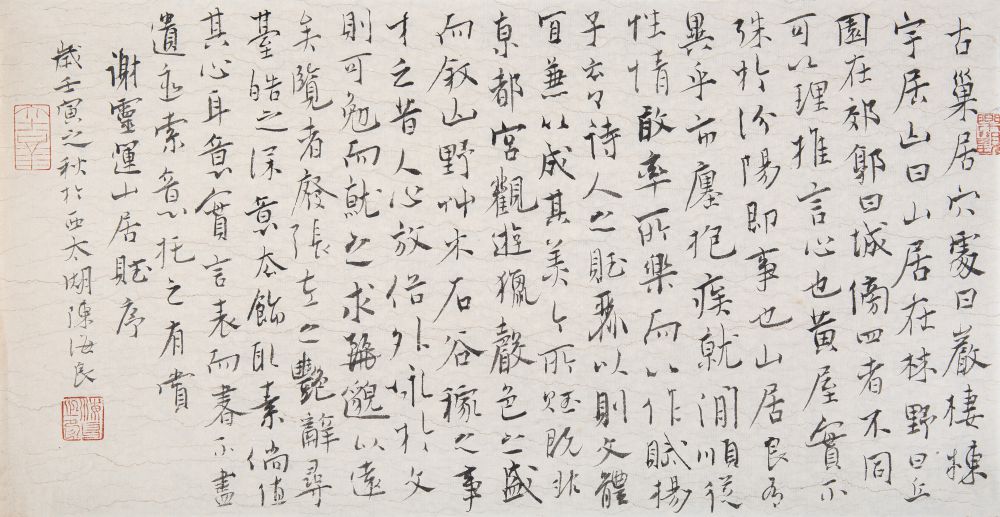 古巢居穴處曰巖棲棟
宇居山曰山居在林野曰丘
園在郊郭曰城傍四者不同
可以理推言心也黃屋實不
殊於汾陽即事也山居良有
異乎市廛抱疾就閒順從
性情敢率所樂而以作賦揚
子云曰詩人之賦麗以則文體
宜兼以成其美今所賦既非
京都宮觀遊獵聲色之盛
而敘山野艸木石谷稼之事
才乏昔人心放俗外詠於文
則可勉而就之求麗邈以遠
矣覽者廢張左之艷辭尋
臺皓之深意去飾取素倘值
其心耳意實言表而書不盡
遺迹索意托之有賞
謝靈運山居賦序
歲壬寅之秋於西太湖陳海良